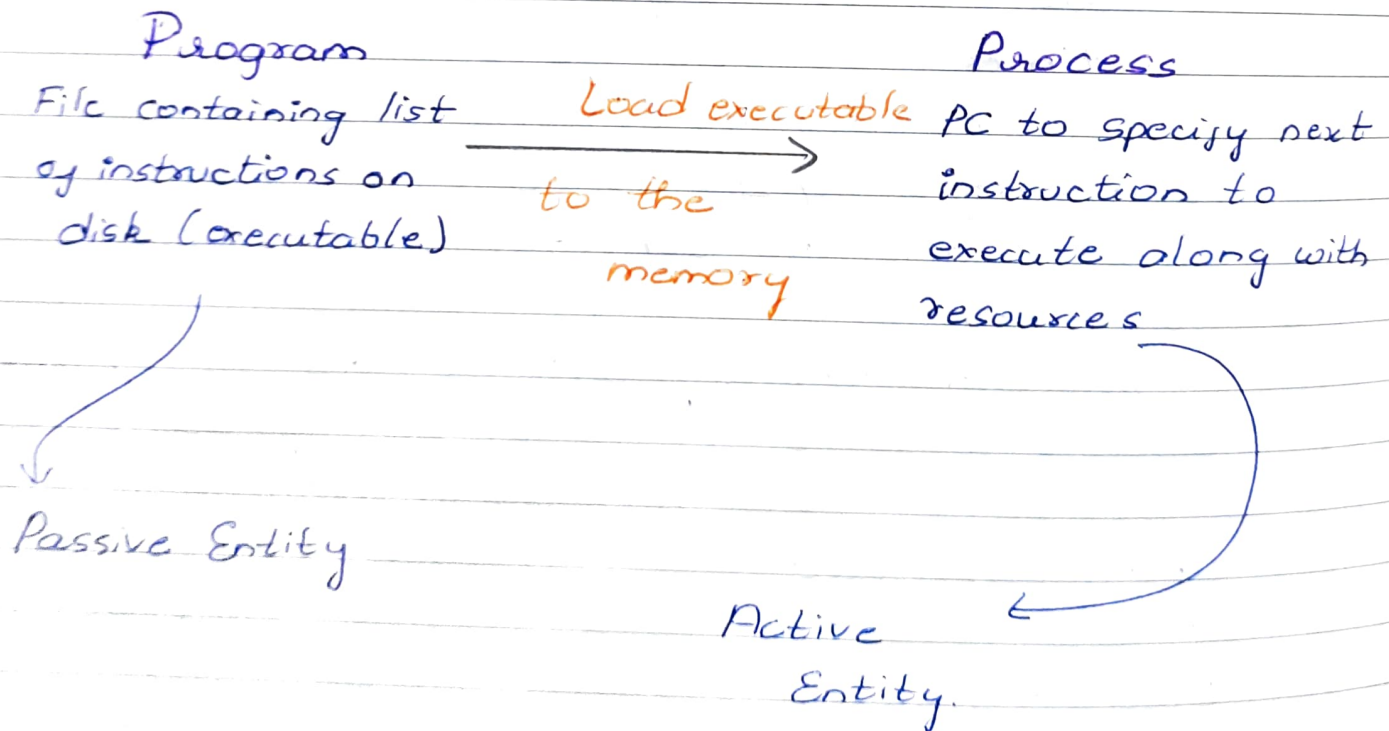 Program
File containing list
of instructions on
disk (executable)
Load executable
to the
memory
Process
PC to specify next
instruction to
execute along with
resources
Passive Entity
Active
Entity.